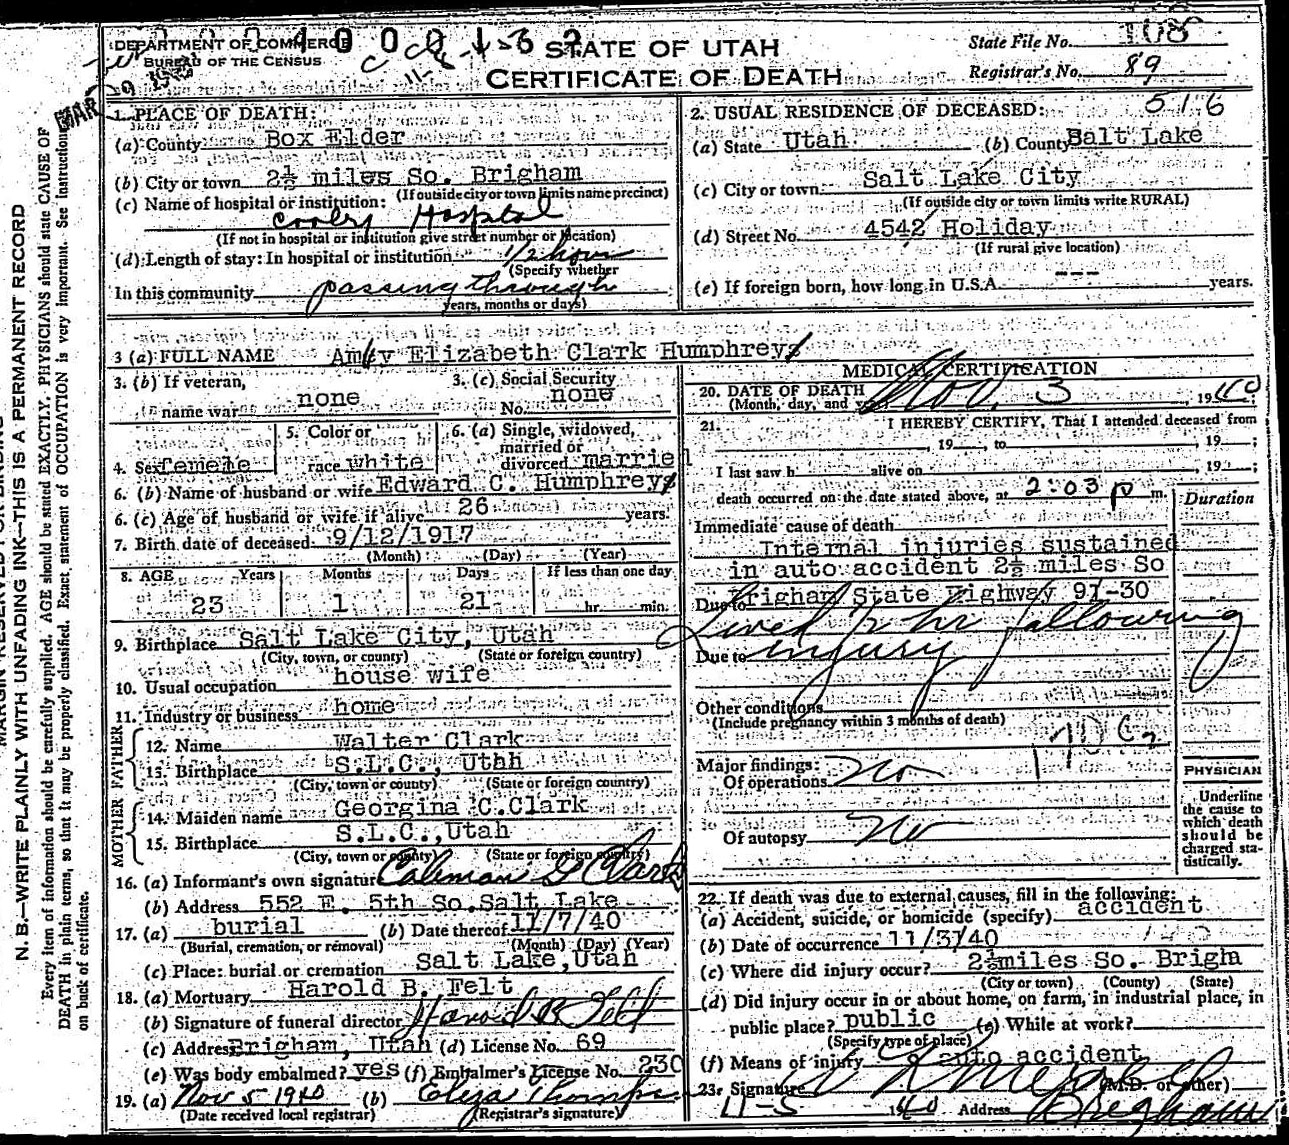 DEPARTMENT OF COMMERCE
BUREAU OF THE CENSUS
STATE OF UTAH
CERTIFICATE OF DEATH
State File No. 108
Registrar's No. 89
516
N. B.—WRITE PLAINLY WITH UNFADING INK—THIS IS A PERMANENT RECORD
Every item of information should be carefully supplied. AGE should be stated EXACTLY. PHYSICIANS should state CAUSE OF
DEATH in plain terms, so that it may be properly classified. Exact statement of OCCUPATION is very important. See instructions
on back of certificate.
1. PLACE OF DEATH:
(a) County Box Elder
(b) City or town 2½ miles So. Brigham
(If outside city or town limits name precinct)
(c) Name of hospital or institution:
Cooley Hospital
(If not in hospital or institution give street number or location)
(d) Length of stay: In hospital or institution 1/2 hour
(Specify whether
In this community passing through
years, months or days)
2. USUAL RESIDENCE OF DECEASED:
(a) State Utah (b) County Salt Lake
(c) City or town Salt Lake City
(If outside city or town limits write RURAL)
(d) Street No. 4542 Holiday
(If rural give location)
(e) If foreign born, how long in U.S.A. --- years.
3 (a) FULL NAME Amy Elizabeth Clark Humphreys
3. (b) If veteran,
name war none
3. (c) Social Security
No. none
4. Sex femele
5. Color or
race white
6. (a) Single, widowed,
married or
divorced married
6. (b) Name of husband or wife Edward C. Humphreys
6. (c) Age of husband or wife if alive 26 years.
7. Birth date of deceased 9/12/1917
(Month) (Day) (Year)
8. AGE Years Months Days If less than one day
23 1 21 hr. min.
9. Birthplace Salt Lake City, Utah
(City, town, or county) (State or foreign country)
10. Usual occupation house wife
11. Industry or business home
FATHER
12. Name Walter Clark
13. Birthplace S.L.C., Utah
(City, town or county) (State or foreign country)
MOTHER
14. Maiden name Georgina C. Clark
15. Birthplace S.L.C., Utah
(City, town or county) (State or foreign country)
16. (a) Informant's own signature Clark
(b) Address 552 E. 5th So. Salt Lake
17. (a) burial (b) Date thereof 11/7/40
(Burial, cremation, or removal) (Month) (Day) (Year)
(c) Place: burial or cremation Salt Lake, Utah
18. (a) Mortuary Harold B. Felt
(b) Signature of funeral director Harold B Felt
(c) Address Brigham, Utah (d) License No. 69
(e) Was body embalmed? yes (f) Embalmer's License No. 230
19. (a) Nov 5 1940 (b)
(Date received local registrar) (Registrar's signature)
MEDICAL CERTIFICATION
20. DATE OF DEATH Nov. 3 1940;
(Month, day, and year)
21. I HEREBY CERTIFY, That I attended deceased from
, 19 , to , 19 ;
I last saw h alive on , 19 ;
death occurred on the date stated above, at 2:03 p m.
Duration
Immediate cause of death
Internal injuries sustained
in auto accident 2½ miles So
Due to Brigham State Highway 91-30
Lived 1/2 hr following
Due to injury
Other conditions
(Include pregnancy within 3 months of death)
Major findings:
Of operations no
Of autopsy no
PHYSICIAN
Underline
the cause to
which death
should be
charged sta-
tistically.
22. If death was due to external causes, fill in the following:
(a) Accident, suicide, or homicide (specify) accident
(b) Date of occurrence 11/3/40
(c) Where did injury occur? 2½miles So. Brigh
(City or town) (County) (State)
(d) Did injury occur in or about home, on farm, in industrial place, in
public place? public (e) While at work?
(Specify type of place)
(f) Means of injury auto accident
23. Signature (M.D. or other)
11-5 1940 Address Brigham